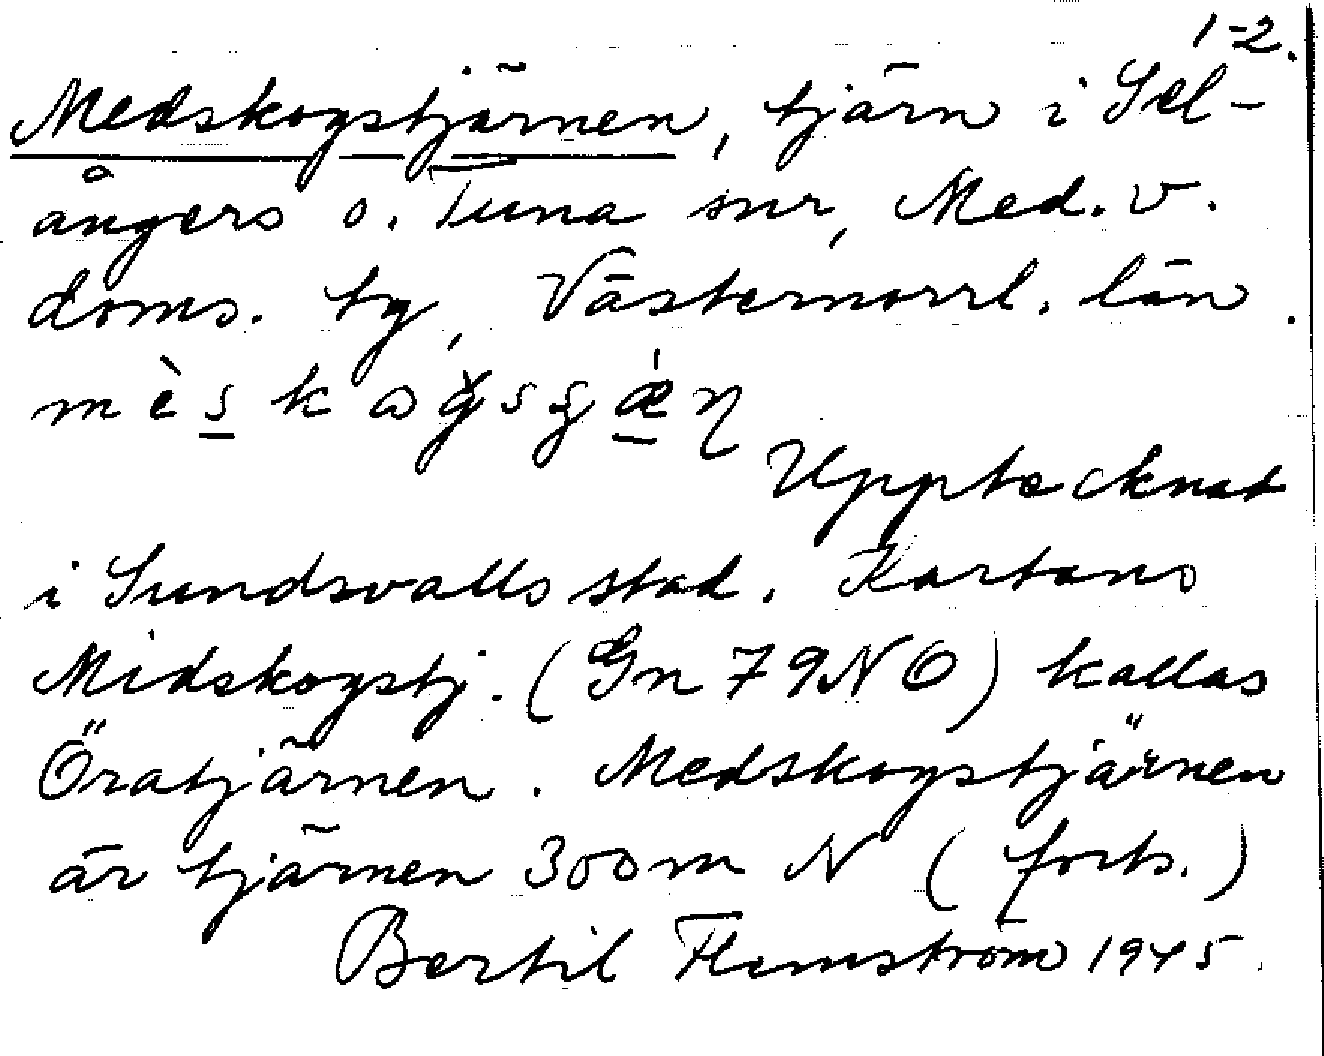 1-2.
Medskogstjärnen, tjärn i Sel-
ångers o. Tuna snr, Med. v.
doms. tg, Västernorrl. län.
Upptecknad
i Sundsvalls stad. Kartans
Midskogstj. (Gn 79NO) kallas
Öratjärnen. Medskogstjärnen
är tjärnen 300m N (forts.)
Bertil Flemström 1945.